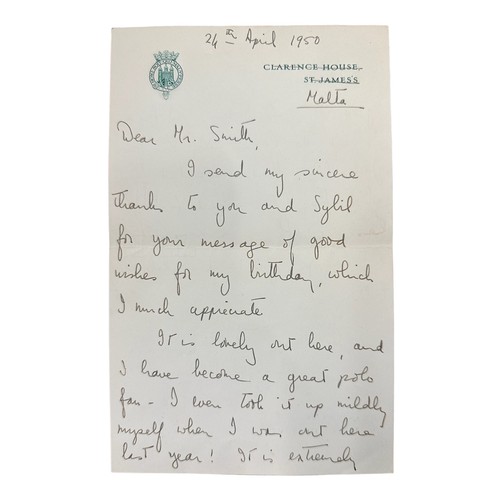 24th April 1950
CLARENCE HOUSE,
ST. JAMES'S
Malta
Dear Mr. Smith,
I send my sincere
thanks to you and Sybil
for your message of good
wishes for my birthday, which
I much appreciate
It is lovely out here, and
I have become a great polo
fan - I even took it up mildly
myself when I was out here
last year! It is extremely